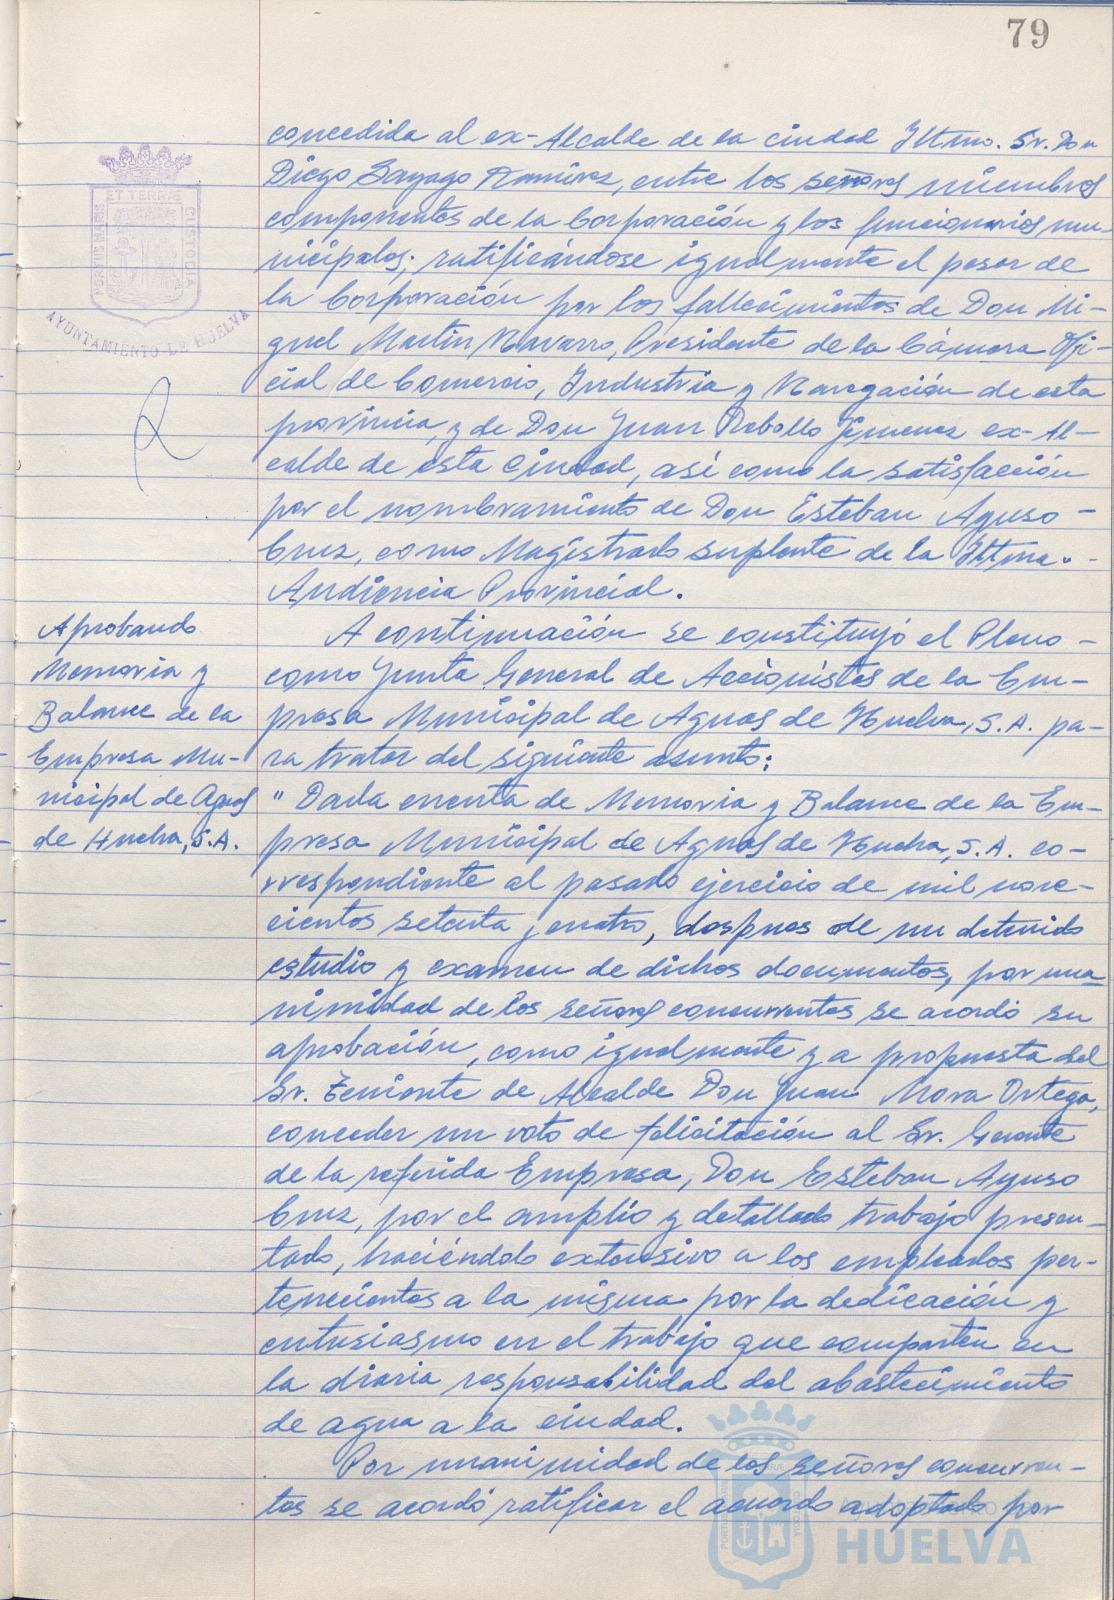 79
concedida al ex-Alcalde de la ciudad Iltmo. Sr. Don
Diego Sayago Ramírez, entre los señores miembros
componentes de la Corporación y los funcionarios mu-
nicipales; ratificándose igualmente el pesar de
la Corporación por los fallecimientos de Don Mi-
guel Martín Navarro, Presidente de la Cámara Ofi-
cial de Comercio, Industria y Navegación de esta
provincia, y de Don Juan Rebollo Jimenez ex-Al-
calde de esta Ciudad, así como la satisfacción
por el nombramiento de Don Esteban Ayuso-
Cruz, como Magistrado suplente de la Iltma.-
Audiencia Provincial.
Aprobando
Memoria y
Balance de la
Empresa Mu-
nicipal de Aguas
de Huelva, S.A.
A continuación se constituyó el Pleno-
como Junta General de Accionistas de la Em-
presa Municipal de Aguas de Huelva, S.A. pa-
ra tratar del siguiente asunto:
" Dada cuenta de Memoria y Balance de la Em-
presa Municipal de Aguas de Huelva, S.A. co-
rrespondiente al pasado ejercicio de mil nove-
cientos setenta y cuatro, despues de un detenido
estudio y examen de dichos documentos, por una
nimidad de los señores concurrentes se acordó su
aprobación, como igualmente y a propuesta del
Sr. Teniente de Alcalde Don Juan Mora Ortega,
conceder un voto de felicitación al Sr. Gerente
de la referida Empresa, Don Esteban Ayuso
Cruz, por el amplio y detallado trabajo presen-
tado, haciéndolo extensivo a los empleados per-
tenecientes a la misma por la dedicación y
entusiasmo en el trabajo que comparten en
la diaria responsabilidad del abastecimiento
de agua a la ciudad.
Por unanimidad de los señores concurren-
tes se acordó ratificar el acuerdo adoptado por
PORTUS MARIS
ET TERRAE
CUSTODIA
AYUNTAMIENTO DE HUELVA
HUELVA